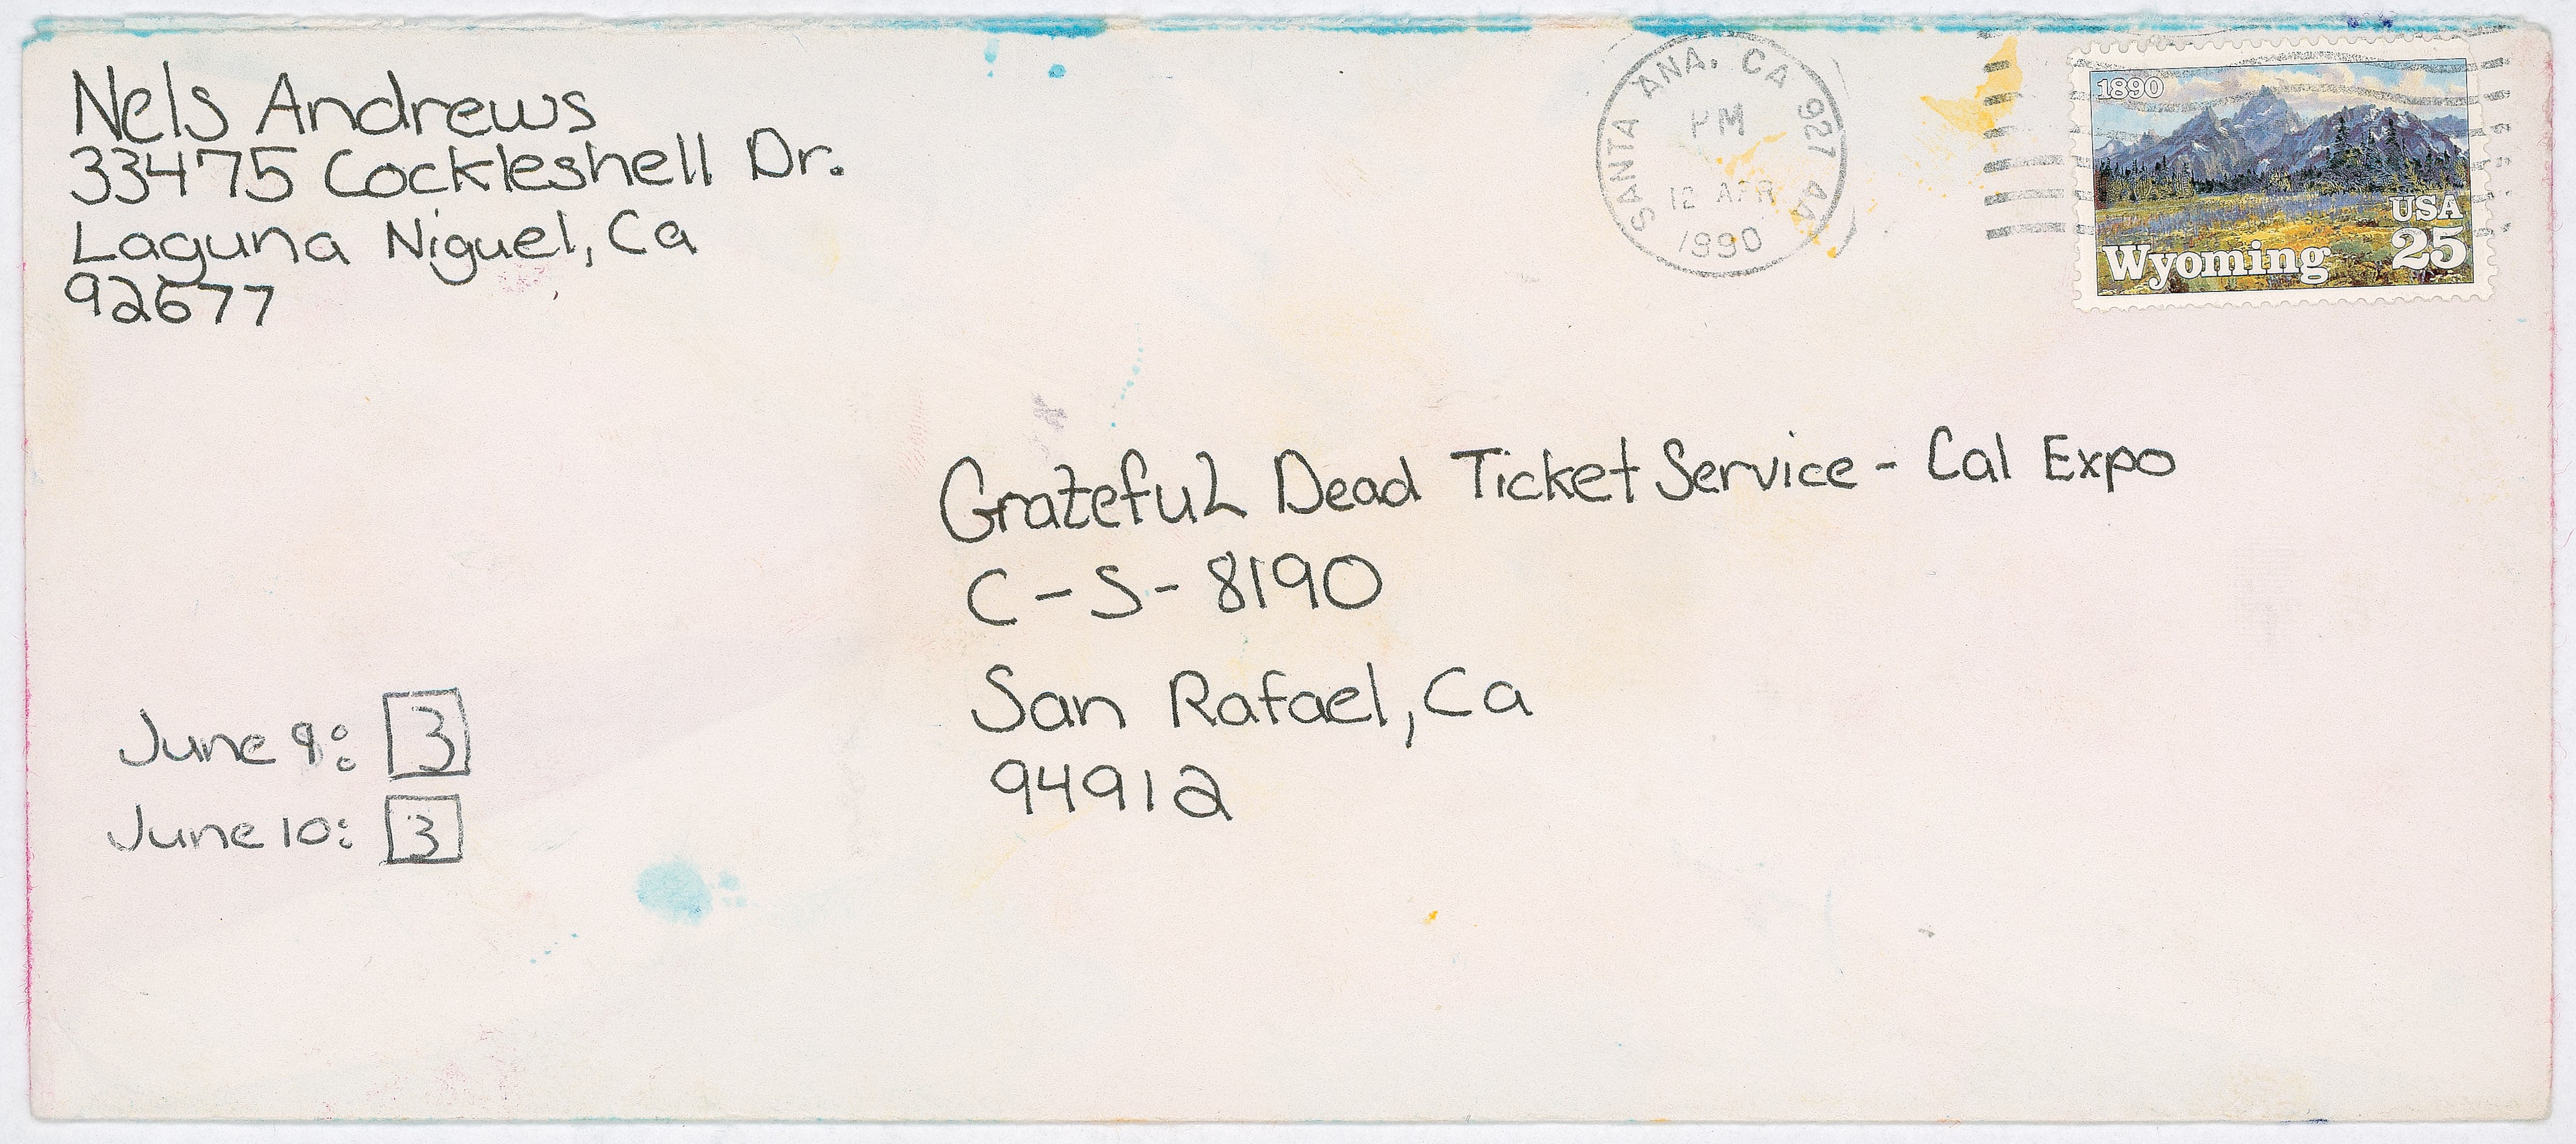 Nels Andrews
33475 Cockleshell Dr.
Laguna Niguel, Ca
92677
SANTA ANA, CA 927 4A
PM
12 APR
1990
1890
USA
25
Wyoming
Grateful Dead Ticket Service - Cal Expo
C-S-8190
San Rafael, Ca
94912
June 9: 3
June 10: 3